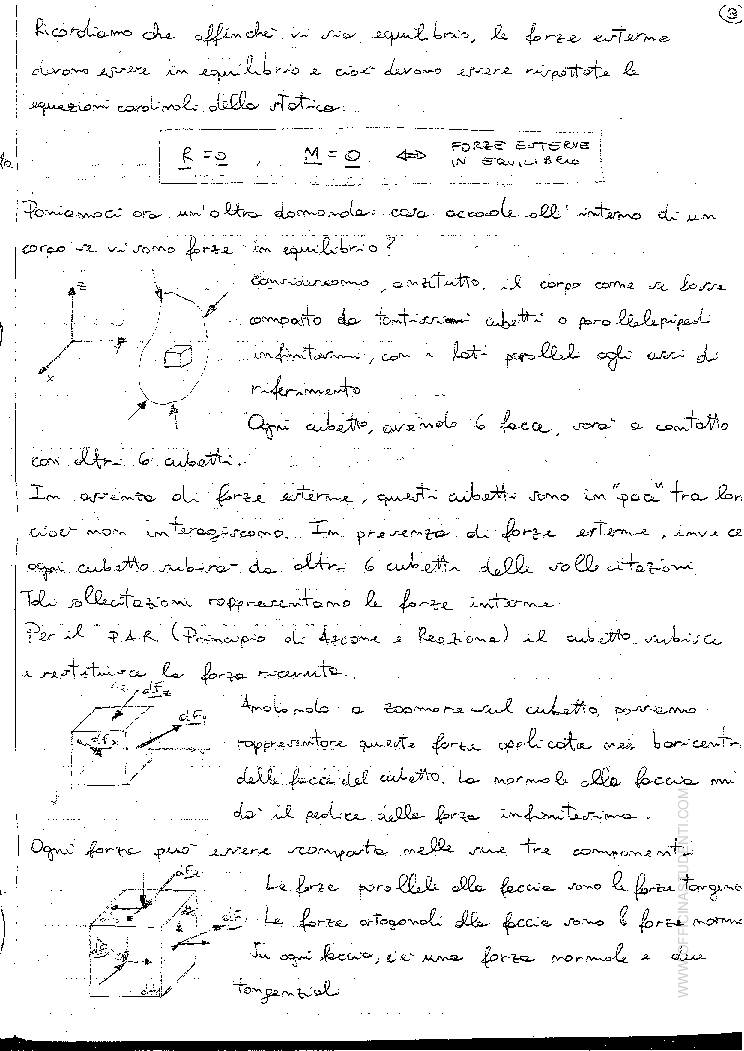 3
Ricordiamo che affinché vi sia equilibrio, le forze esterne
devono essere in equilibrio e cioè devono essere rispettate le
equazioni cardinali della statica.
R = 0 , M = 0 ⇔ FORZE ESTERNE
IN EQUILIBRIO
Poniamoci ora un'altra domanda: cosa accade all'interno di un
corpo se vi sono forze in equilibrio?
Consideriamo, anzitutto, il corpo come se fosse
composto da tantissimi cubetti o parallelepipedi
infinitesimi, con i lati paralleli agli assi di
riferimento
z
y
x
Ogni cubetto, avendo 6 facce, sarà a contatto
con altri 6 cubetti.
In assenza di forze esterne, questi cubetti sono in "pace" tra lor
cioè non interagiscono. In presenza di forze esterne, invece
ogni cubetto subirà da altri 6 cubetti delle sollecitazioni
Tali sollecitazioni rappresentano le forze interne.
Per il P.A.R (Principio di Azione e Reazione) il cubetto subisce
e restituisce la forza ricevuta.
dFz
dFy
dFx
Andando a zoomare sul cubetto, possiamo
rappresentare queste forze applicate nei baricentr
delle facce del cubetto. La normale alla faccia mi
dà il pedice della forza infinitesima.
Ogni forza può essere scomposta nelle sue tre componenti
dFz
Le forze parallele alla faccia sono le forze tangenz
Le forze ortogonali alla faccia sono le forze norma
Su ogni faccia, c'è una forza normale e due
tangenziali
WWW.OFFICINASTUDENTI.COM